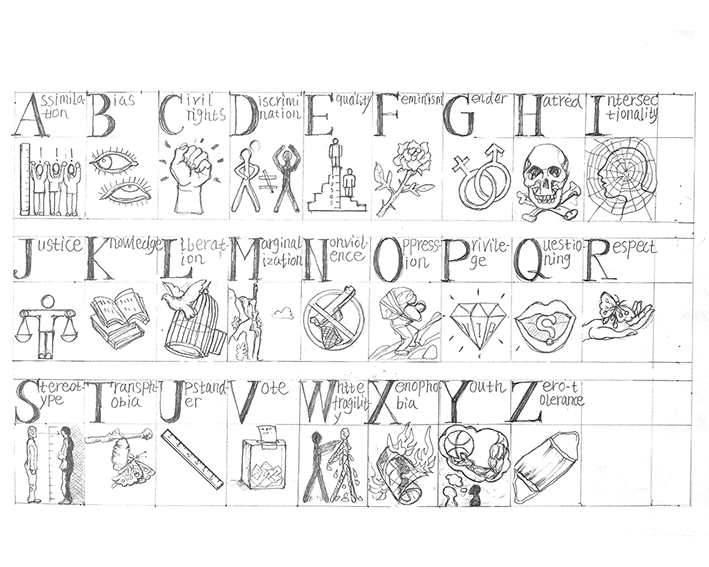 Assimila-
tion
Bias
Civil
rights
Discrimi
nation
Equality
Feminism
Gender
Hatred
Intersec
tionality
Justice
Knowledge
Liberat-
ion
Marginal
ization
Nonviol-
ence
Oppress-
ion
Privile-
ge
VIP
Questio-
ning
S
Respect
Stereot-
ype
Transph-
obia
Upstand-
er
Vote
White
fragility
Xenopho-
bia
Youth
Zero-t
olerance